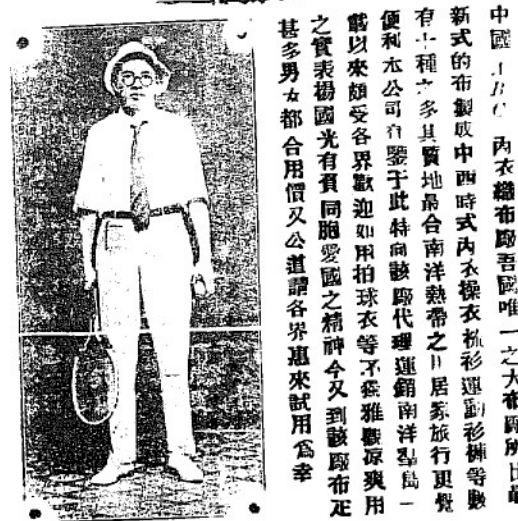 中國ABC內衣織布廠吾國唯一之大布廠所出
新式的布製成中西時式內衣操衣 衫運動衫褲等數
有十種之多其質地最合南洋熱帶之 居家旅行更覺
便利本公司有鑒于此特向該廠代理運銷南洋羣島一
戲以來頗受各界歡迎如用拍球衣等不獨雅觀凉爽用
之實表揚國光有資同胞愛國之精神今又到該廠布疋
甚多男女都合用價又公道請各界惠來試用爲幸